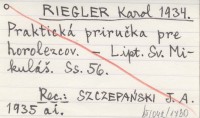 RIEGLER Karol 1934.
Praktická príručka pre
horolezcov. — Lipt. Sv. Mi-
kuláš. Ss. 56.
Rec.: SZCZEPAŃSKI J. A.
1935 ai.